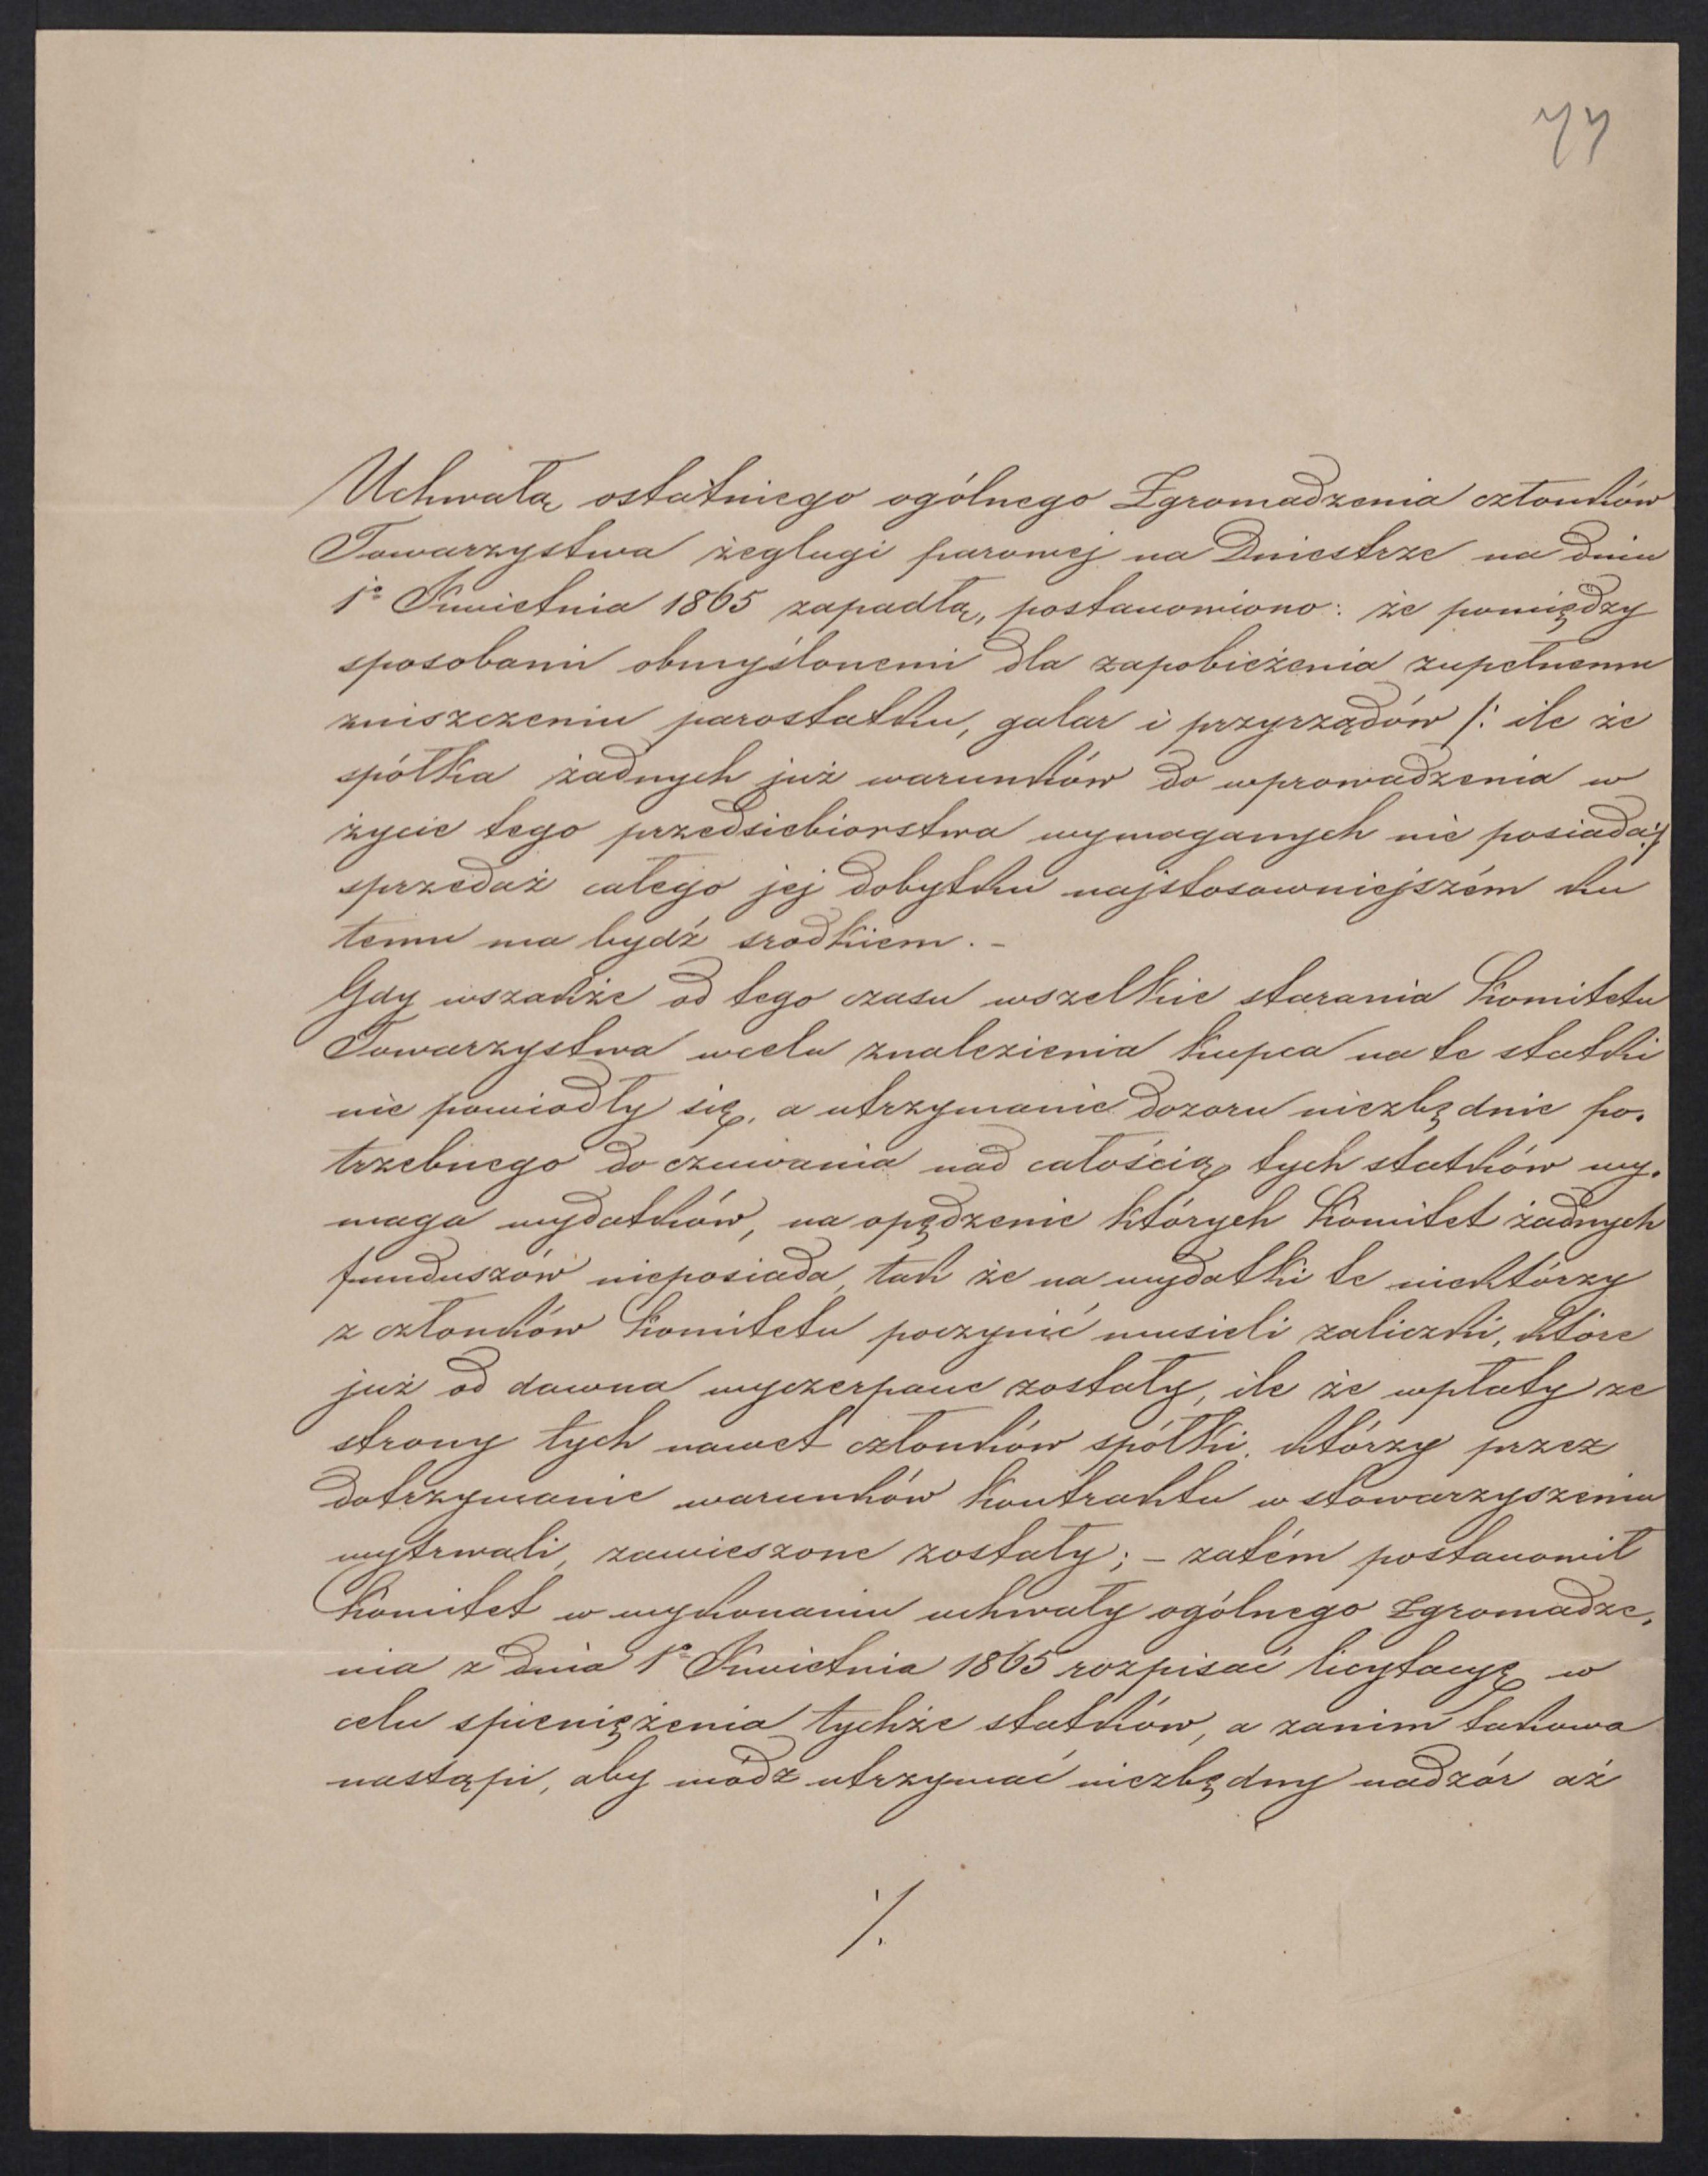 77
Uchwałą ostatniego ogólnego Zgromadzenia członków
Towarzystwa żeglugi parowej na Dniestrze na dniu
1º Kwietnia 1865 zapadłą, postanowiono: że pomiędzy
sposobami obmyślonemi dla zapobieżenia zupełnemu
zniszczeniu parostatku, galar i przyrządów /: ile że
spółka żadnych już warunków do wprowadzenia w
życie tego przedsiebiorstwa wymaganych nie posiada :/
sprzedaż całego jej dobytku najstosowniejszém ku
temu ma bydź srodkiem. –
Gdy wszakże od tego czasu wszelkie starania Komitetu
Towarzystwa wcelu znalezienia kupca na te statki
nie powiodły się, a utrzymanie dozoru niezbędnie po-
trzebnego do czuwania nad całością tych statków wy-
maga wydatków, na opędzenie których Komitet żadnych
funduszów nieposiada, tak że na wydatki te niektórzy
z członków Komitetu poczynić musieli zaliczki, które
już od dawna wyczerpane zostały, ile że wpłaty ze
strony tych nawet członków spółki, którzy przez
dotrzymanie warunków kontraktu w stowarzyszeniu
wytrwali, zawieszone zostały; – zatém postanowił
Komitet w wykonaniu uchwały ogólnego Zgromadze-
nia z dnia 1º Kwietnia 1865 rozpisać licytacyę w
celu spieniężenia tychże statków, a zanim takowa
nastąpi, aby módz utrzymać niezbędny nadzór aż
·/.